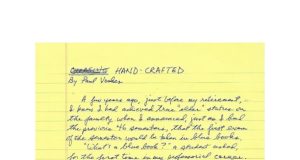 HAND-CRAFTED
By Paul
A few years ago, just before my retirement,
I knew I had achieved true "elder" status on
the faculty when I announced, just as I had
the previous semesters, that the first exam
of the semester would be taken in blue books.
"What's a blue book?" a student asked,
for the first time in my professorial career.